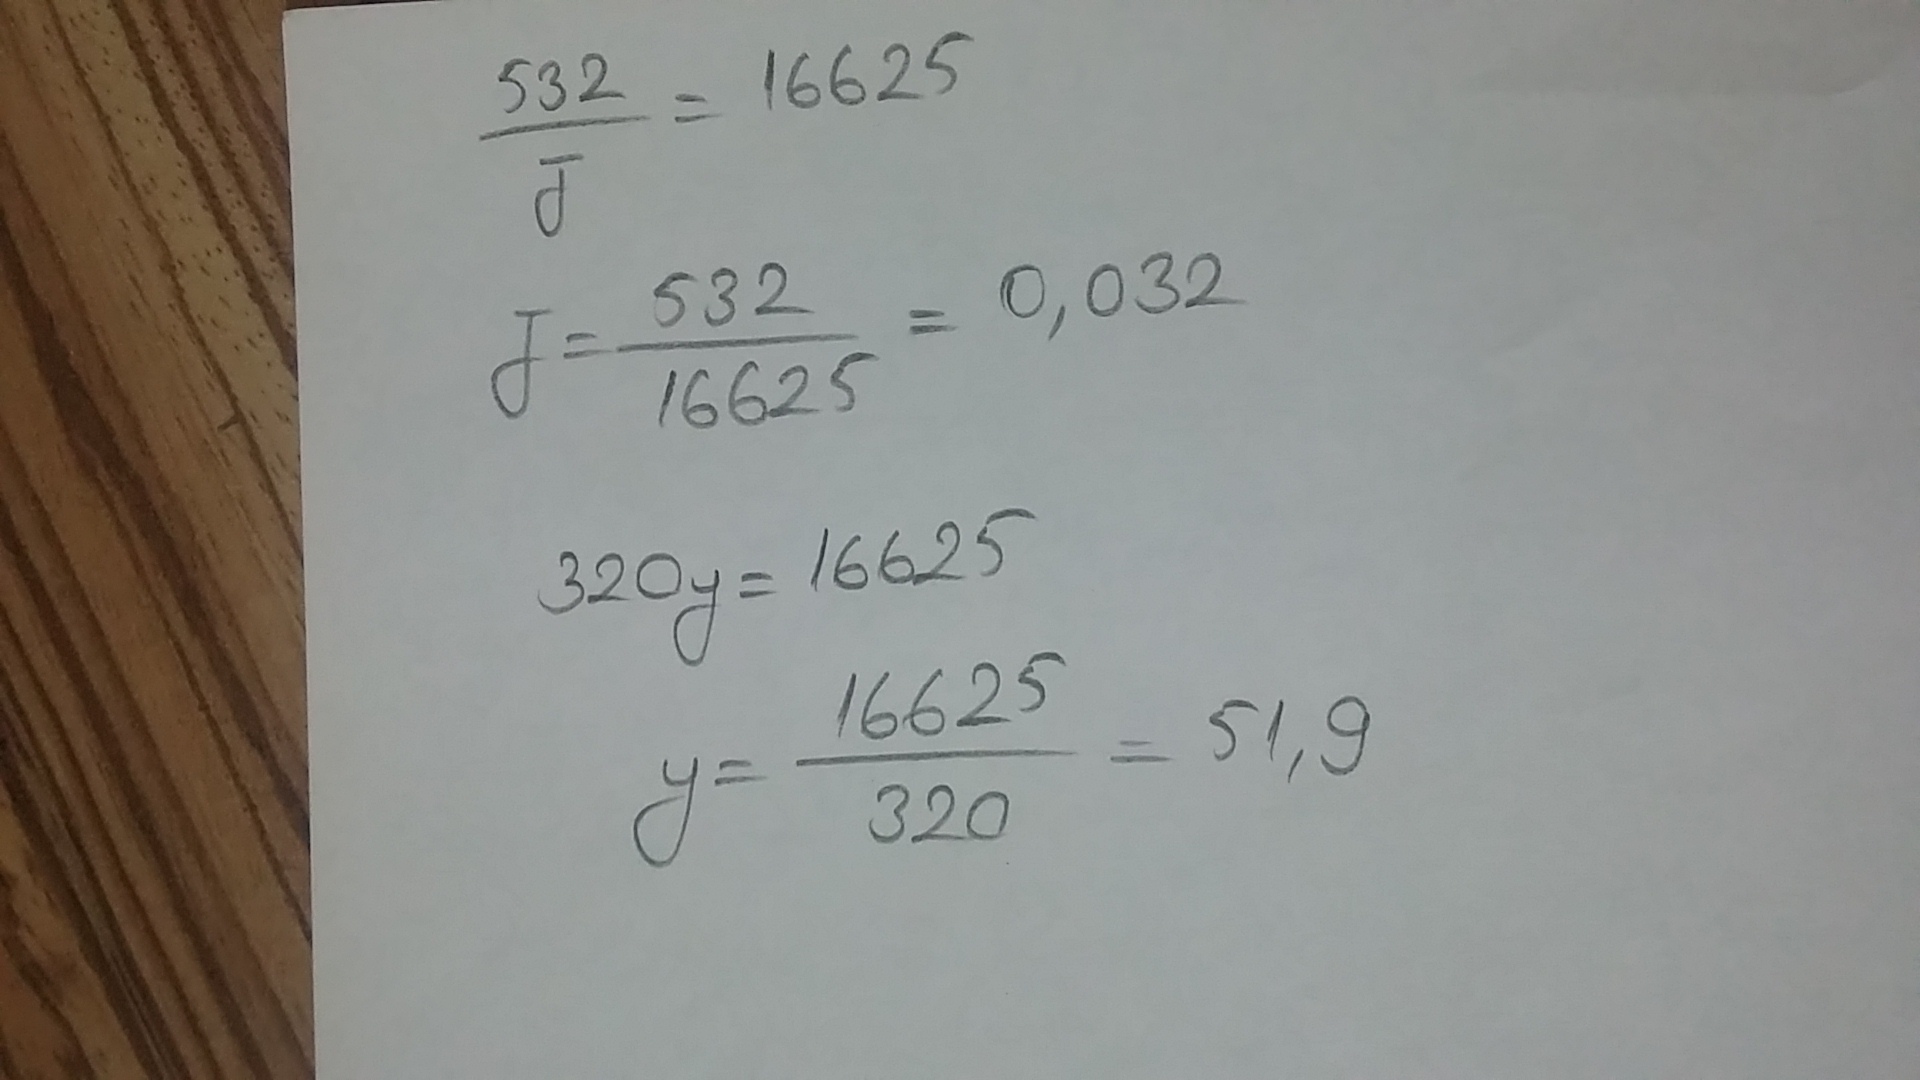 532/J = 16625
J = 532/16625 = 0,032
320y = 16625
y = 16625/320 = 51,9